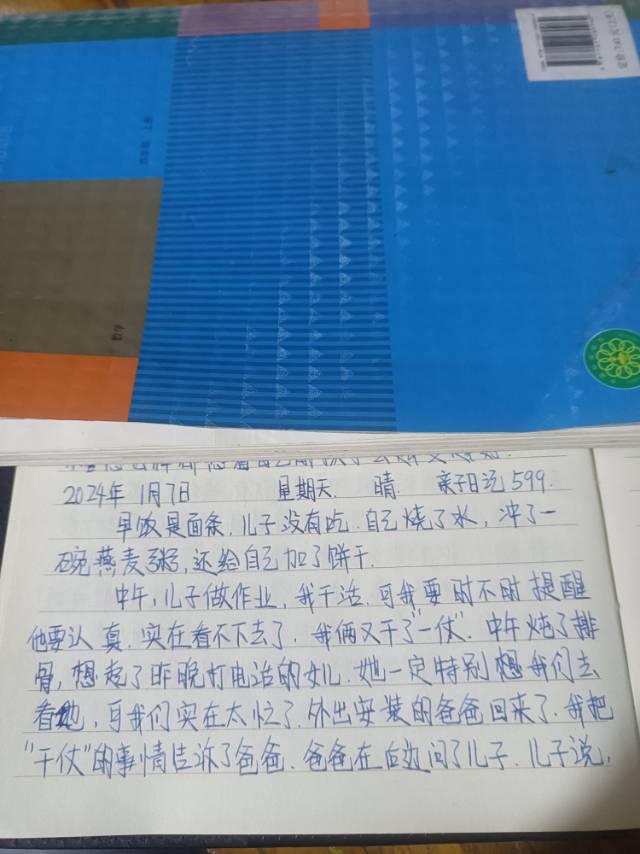 数学
2024年 1月7日 星期天. 晴. 亲子日记 599.
早饭是面条. 儿子没有吃. 自己烧了水, 冲了一
碗燕麦粥, 还给自己加了饼干.
中午, 儿子做作业, 我干活. 可我要时不时提醒
他要认真. 实在看不下去了, 我俩又干了"一仗". 中午炖了排
骨, 想起了昨晚打电话的女儿. 她一定特别想我们去
看她, 可我们实在太忙了. 外出安装的爸爸回来了. 我把
"干仗"的事情告诉了爸爸. 爸爸在后边问了儿子. 儿子说,